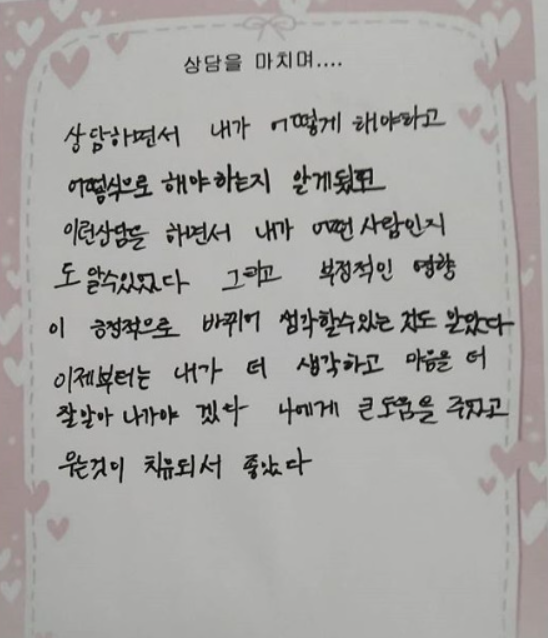 상담을 마치며....
상담하면서 내가 어떻게 해야하고
어떤식으로 해야하는지 알게됐고
이런상담을 하면서 내가 어떤 사람인지
도 알수있었다 그리고 부정적인 영향
이 긍정적으로 바뀌어 생각할수있는 것도 알았다
이제부터는 내가 더 생각하고 마음을 더
잘알아 나가야 겠다 나에게 큰도움을 주었고
우는것이 치유되서 좋았다